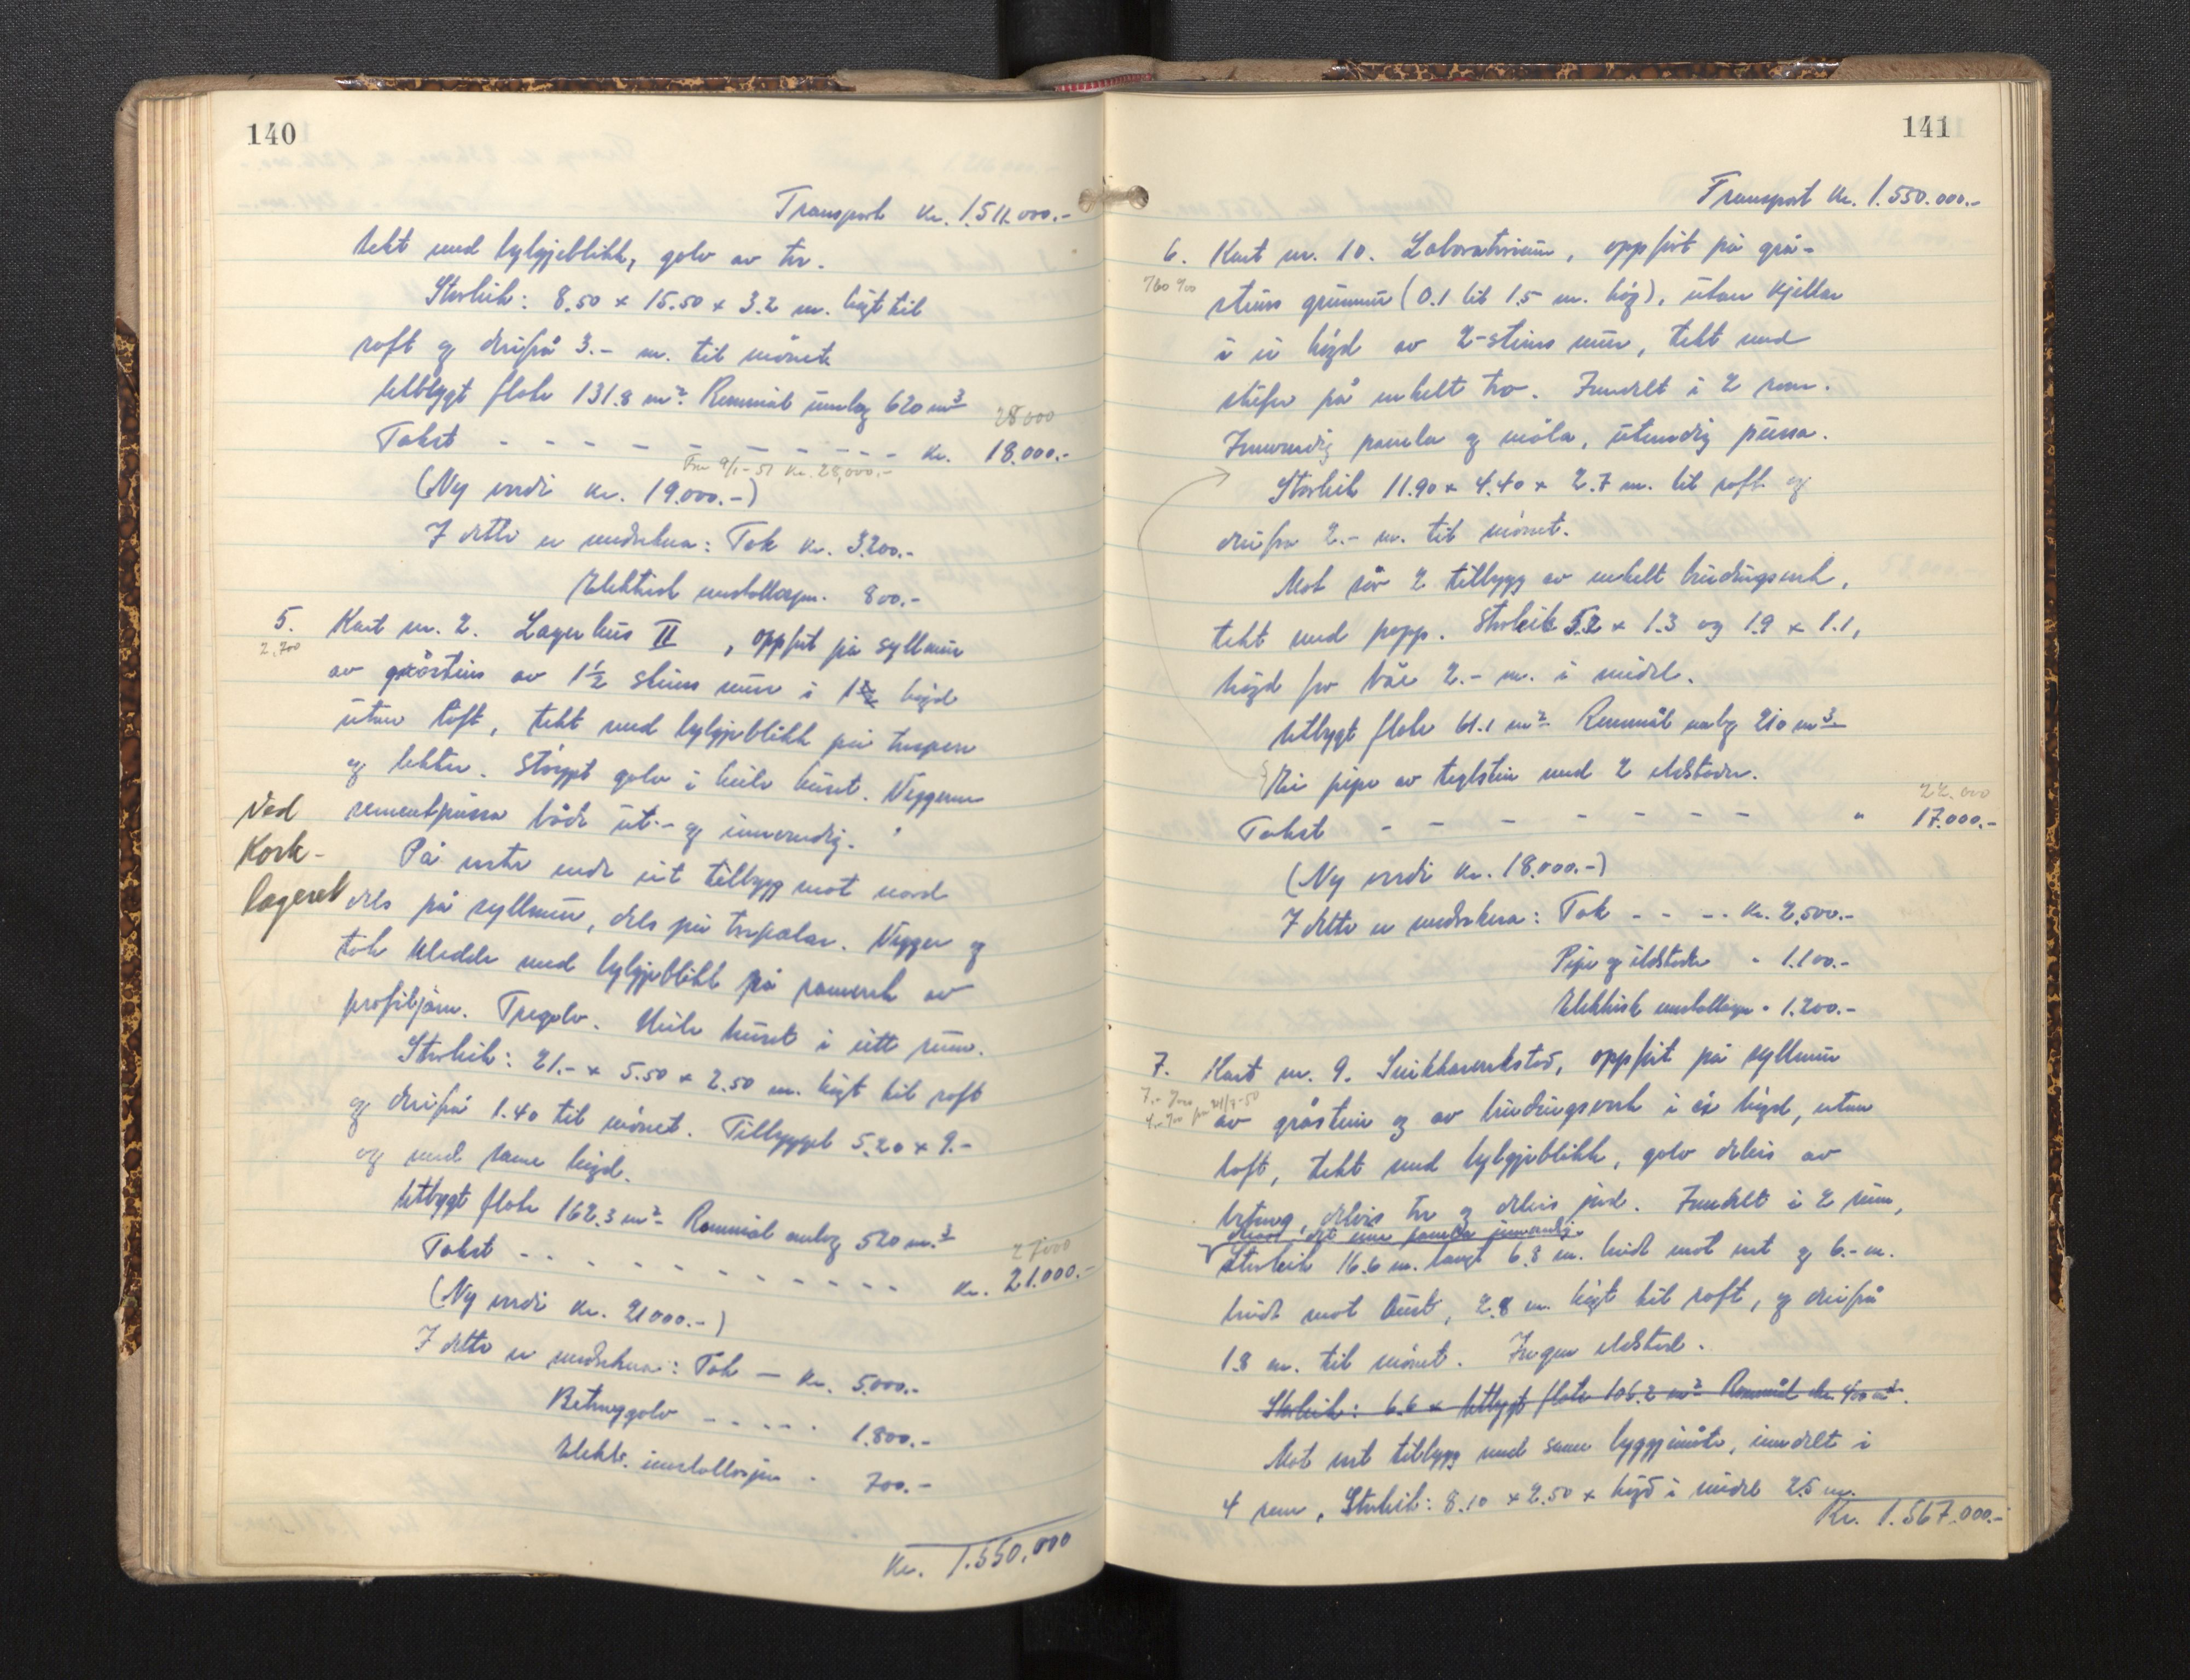 140
Transport Kr. 1.511.000.-
tekt med bylgjeblikk, golv av tre.
Storleik: 8.50 x 15.50 x 3.2 m. høgt til
roft og derifrå 3.- m. til mønet
Utbygt flate 131.8 m² Rommål umlag 620 m³
28000
Takst - - - - - - - - - - Kr. 18.000.-
Frå 9/1-51 Kr. 28,000.-
(Ny verdi kr. 19.000.-)
I dette er medrekna: Tak kr. 3.200.-
Elektrisk installasjon. 800.-
5. Kart nr. 2. Lagerhus II, oppført på syllmur
2,700
av gråstein av 1½ steins mur i 1 høgd
utan loft, tekt med bylgjeblikk på tresperr
og lekter. Støypt golv i heile huset. Veggene
sementpussa både ut- og innvendig.
Ved
Kork-
lageret
På vestre ende eit tilbygg mot nord
dels på syllmur, dels på trepælar. Vegger og
tak kledde med bylgjeblikk på ramverk av
profiljarn. Tregolv. Heile huset i eitt rum.
Storleik: 21.- x 5.50 x 2.50 m. høgt til roft
og derifrå 1.40 til mønet. Tilbygget 5.20 x 9.-
og med same høgd.
Utbygt flate 162.3 m² Rommål umlag 520 m.³
27000
Takst - - - - - - - - - - Kr. 21.000.-
(Ny verdi kr. 21000.-)
I dette er medrekna: Tak - kr. 5.000.-
Betonggolv - - - - - 1.800.-
Elektr. installasjon - 700.-
Kr. 1.550,000
141
Transport Kr. 1.550.000.-
6. Kart nr. 10. Laboratorium, oppført på grå-
steins grunnmur (0.1 til 1.5 m. høg), utan kjellar
i ei høgd av 2-steins mur, tekt med
skifer på enkelt tro. Inndelt i 2 rom.
Innvendig panela og måla, utvendig pussa.
Storleik 11.90 x 4.40 x 2.7 m. til roft og
derifrå 2.- m. til mønet.
Mot sør 2 tilbygg av enkelt bindingsverk,
tekt med papp. Storleik 5.2 x 1.3 og 1.9 x 1.1,
høgd for båe 2.- m. i midel.
Utbygt flate 61.1 m² Rommål umlag 210 m³.
Ei pipe av teglstein med 2 eldstader.
22.000
Takst - - - - - - - - " 17.000.-
(Ny verdi kr. 18.000.-)
I dette er medrekna: Tak - - - - kr. 2.500.-
Pipe og ildstader " 1.100.-
Elektrisk installasjon " 1.200.-
7. Kart nr. 9. Snikkarverkstad, oppført på syllmur
av gråstein og av bindingsverk i ei høgd, utan
loft, tekt med bylgjeblikk, golv delvis av
betong, delvis tre og delvis jord. Inndelt i 2 rum,
derav det eine panela innvendig.
Storleik 16.6 m. langt 6.8 m. breidt mot vest og 6.- m.
breidt mot aust, 2.8 m. høgt til roft, og derifrå
1.8 m. til mønet. Ingen eldstad.
Storleik: 6.6 x Utbygt flate 106.2 m² Rommål ca. 400 m³.
Mot vest tilbygg med same byggjemåte, inndelt i
4 rom, Storleik: 8.10 x 2.50 x høgd i midel 2.5 m.
Kr. 1.567.000.-